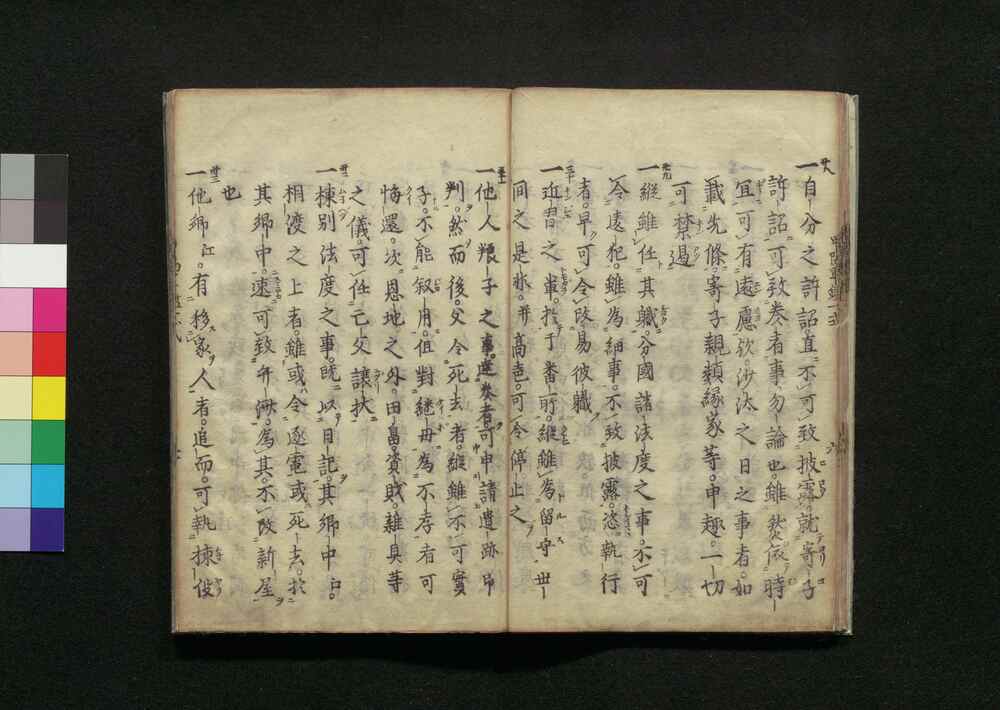 廿八 一自分之訴訟直不可致披露就寄子
訴訟可致奏者事勿論也雖然依時
宜可有遠慮歟沙汰之日之事者如
載先條寄子親類縁家等申趣一切
可禁遏
廿九 一縦雖任其職分國諸法度之事不可
令違犯雖為細事不致披露恣執行
者早可令改易彼職
三十 一近習之輩於于番所縦雖為留守世
間之是非并高声可令停止之
一他人養子之事達奏者可申請遺跡印
判然而後父令死去者縦雖不可實
子不能叙用但對継母為不孝者可
悔還次恩地之外田畠資財雑具等
之儀可任亡父譲状
卅二 一棟別法度之事既以日記其郷中江
相渡之上者雖或令逐電或死去於
其郷中速可致弁済為其不改新屋
也
卅三 一他郷江有移家人者追而可執棟役